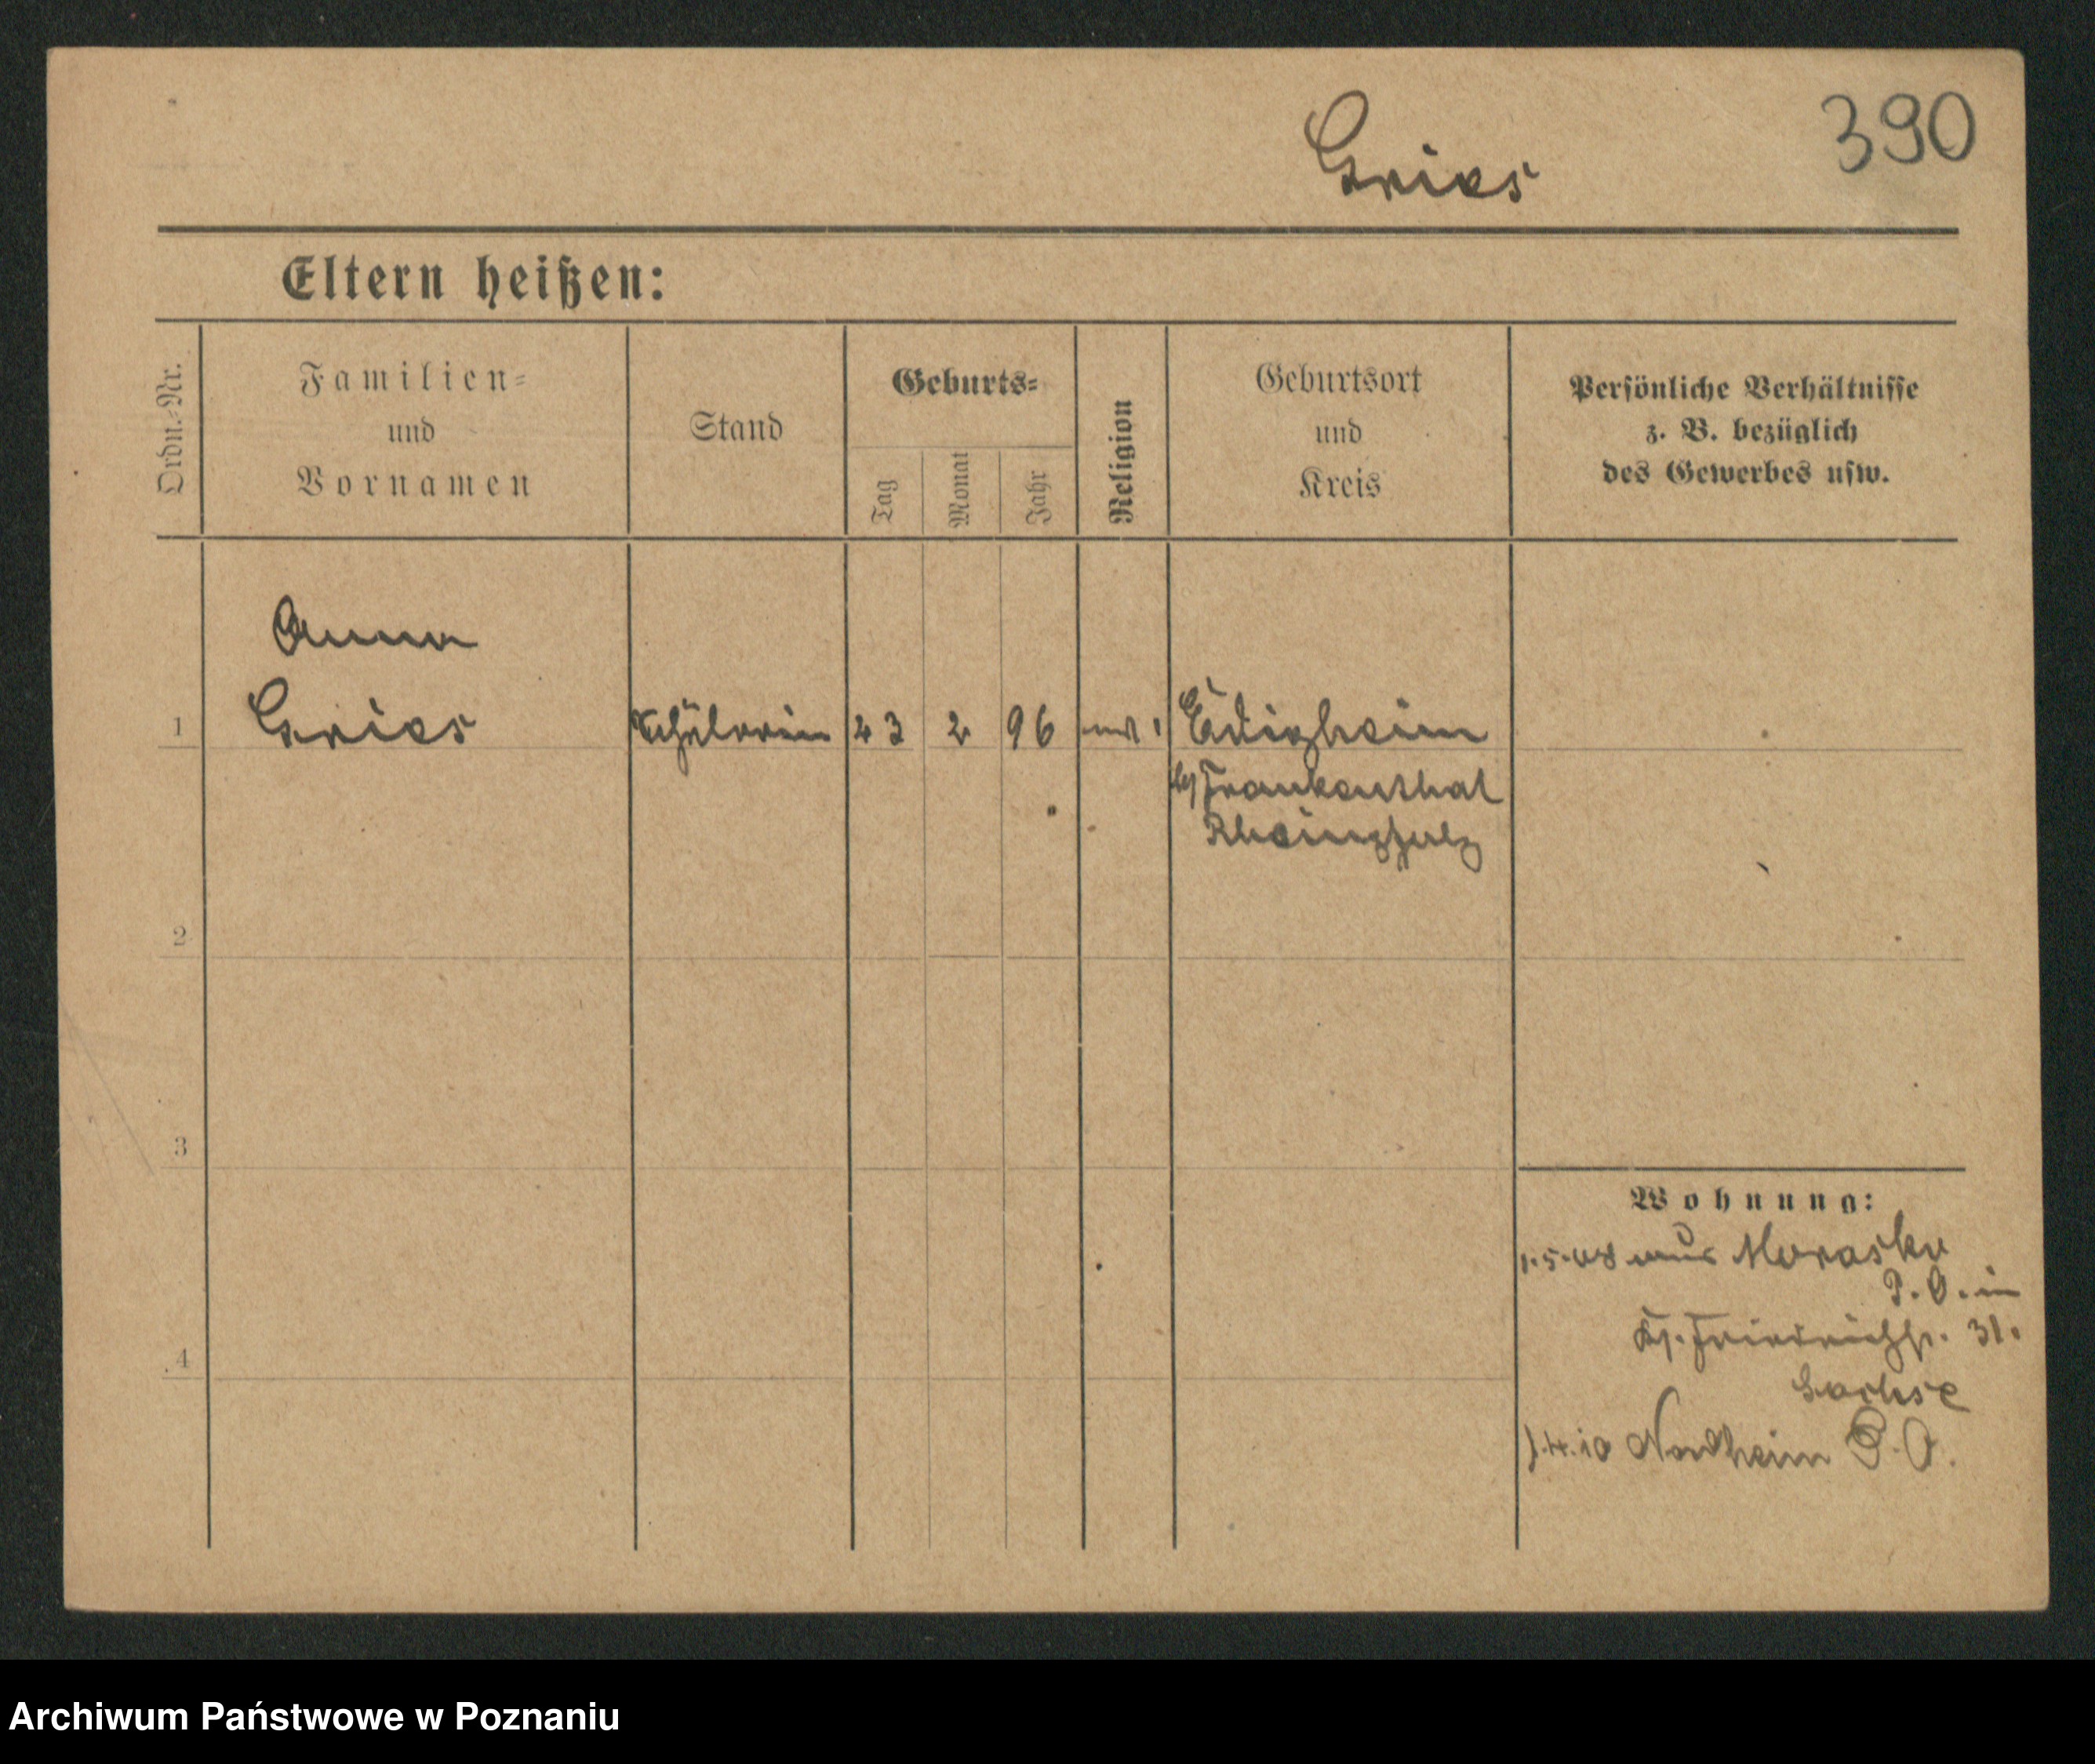 390
Gries
Eltern heißen:
Ordn.-Nr.
Familien-
und
Vornamen
Stand
Geburts-
Tag
Monat
Jahr
Religion
Geburtsort
und
Kreis
Persönliche Verhältnisse
z. B. bezüglich
des Gewerbes usw.
Anna
1 Gries Schülerin 23 2 96 Edigheim
Frankenthal
Rheinpfalz
2
3
4
Wohnung:
1.5.08 aus Morasko
P. O. in
Friedrichstr. 31.
Sachse
1.4.10 Nordheim P. O.
Archiwum Państwowe w Poznaniu